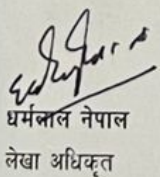 धर्मलाल नेपाल
लेखा अधिकृत